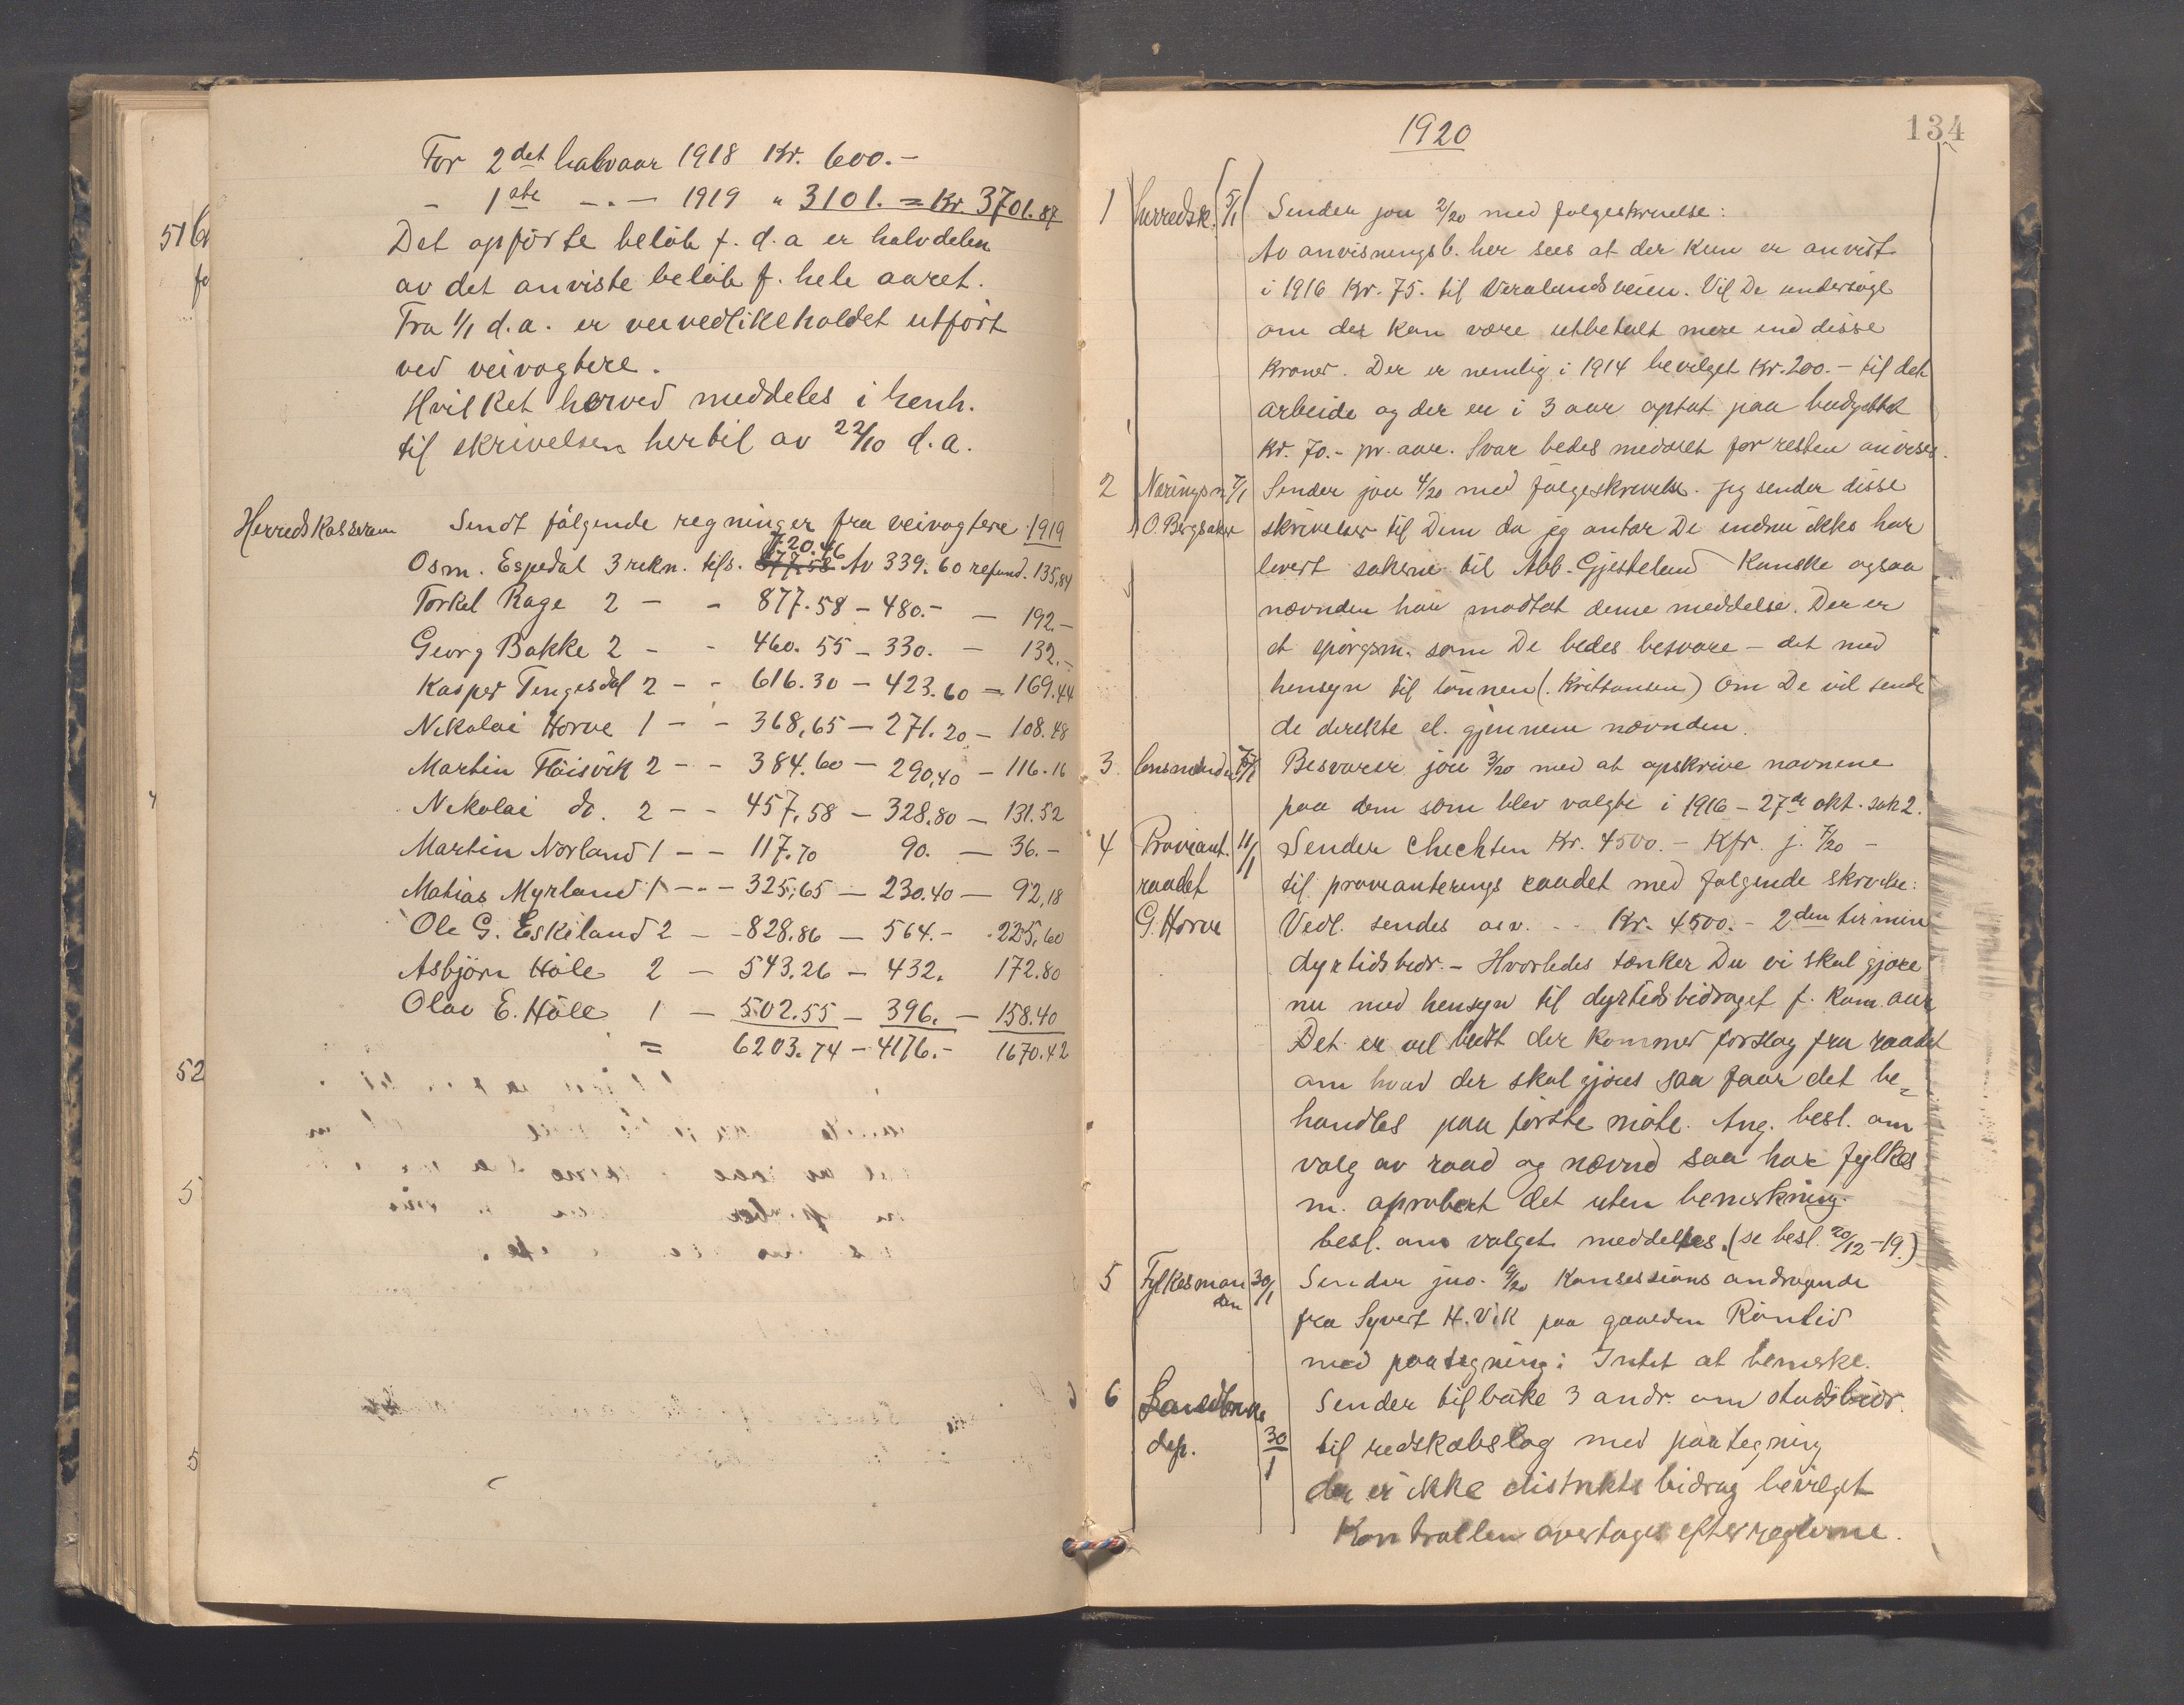 For 2det halvaar 1918 Kr. 600.-
- 1ste -.- 1919 " 3101. = Kr. 3701.87
Det opförte belöb f. d. a er halvdelen
av det anviste belöb f. hele aaret.
Fra 1/1 d.a. er veivedlikeholdet utfört
ved veivogtere.
Hvilket herved meddeles i henh.
til skrivelsen hertil av 22/10 d.a.
Herredskasseraren Sendt fölgende regninger fra veivogtere 1919
720.46
Osm. Espedal 3 rekn. tils. 877.58 Av 339.60 refund. 135,84
Torkel Rage 2 - - 877.58 - 480.- - 192.-
Georg Bakke 2 - - 460.55 - 330. - 132.-
Kasper Tengesdal 2 - - 616.30 - 423.60 - 169.44
Nikolai Horve 1 - - 368,65 - 271.20 - 108.48
Martin Höisvik 2 - - 384.60 - 290,40 - 116.16
Nikolai do. 2 - - 457,58 - 328.80 - 131.52
Martin Norland 1 - - 117.70 90. - 36.-
Matias Myrland 1 - - 325,65 - 230.40 - 92,18
Ole G. Eskeland 2 - - 828.86 - 564.- 225,60
Asbjörn Höle 2 - 543.26 - 432. 172.80
Olav E. Höle 1 - 502.55 - 396. - 158.40
= 6203.74 - 4176.- 1670.42
51
52
5
5
1920
134
1 herredsk. 5/1 Sender jou 2/20 med fölgeskrivelse:
Av anvisningsb. her sees at der kun er anvist
i 1916 Kr. 75. til Veralandsveien. Vil De undersöge
om der kan være utbetalt mere end disse
kroner. Der er nemlig i 1914 bevilget Kr. 200.- til det
arbeide og der er i 3 aar optat paa budgettet
kr. 70.- pr. aar. Svar bedes medsent for resten anvises.
2 Næringsn. 7/1 Sender jou 4/20 med fölgeskrivelse. Jeg sender disse
O. Bergsaker skrivelser til Dem da jeg antar De endnu ikke har
levert sakerne til Abb. Gjesteland Kanske ogsaa
nævnden har modtat denne meddelse. Der er
et spörgsm. som De bedes besvare - det med
hensyn til lönnen (. Kristiansen) Om De vil sende
de direkte el. gjennem nævnden.
3 Lensmanden 7/1 Besvarer jou 3/20 med at opskrive navnene
paa dem som blev valgte i 1916 - 27de okt. sak 2.
4 Proviant. 11/1 Sender Checkten Kr. 4500.- Kfr. j. 7/20 -
raadet til provianterings raadet med fölgende skrivelse:
G. Horve Vedl. sendes anv. - - Kr. 4500.- 2den termin
dyrtidsbidr. - Hvorledes tænker Du vi skal gjöre
nu med hensyn til dyrtidsbidraget f. kom. aar
Det er vel bedst der kommer forslag fra raadet
om hvad der skal gjöres saa faar det be=
handles paa förste möte. Ang. besl. om
valg av raad og nævnd saa har fylkes
m. aprobert det uten bemerkning.
besl. om valget meddeltes. (se besl. 20/12 -19.)
5 Fylkesmanden 30/1 Sender jno. 9/20 Konsessions andragende
fra Syvert H. Vik paa gaarden Röntid
med paategning: Intet at bemerke.
6 Landbruks Sender tilbake 3 andr. om statsbidr.
dep. 30/1 til redskabslag med paategning
der er ikke distrikts bidrag bevilget
Kontrollen overtages efter reglerne.